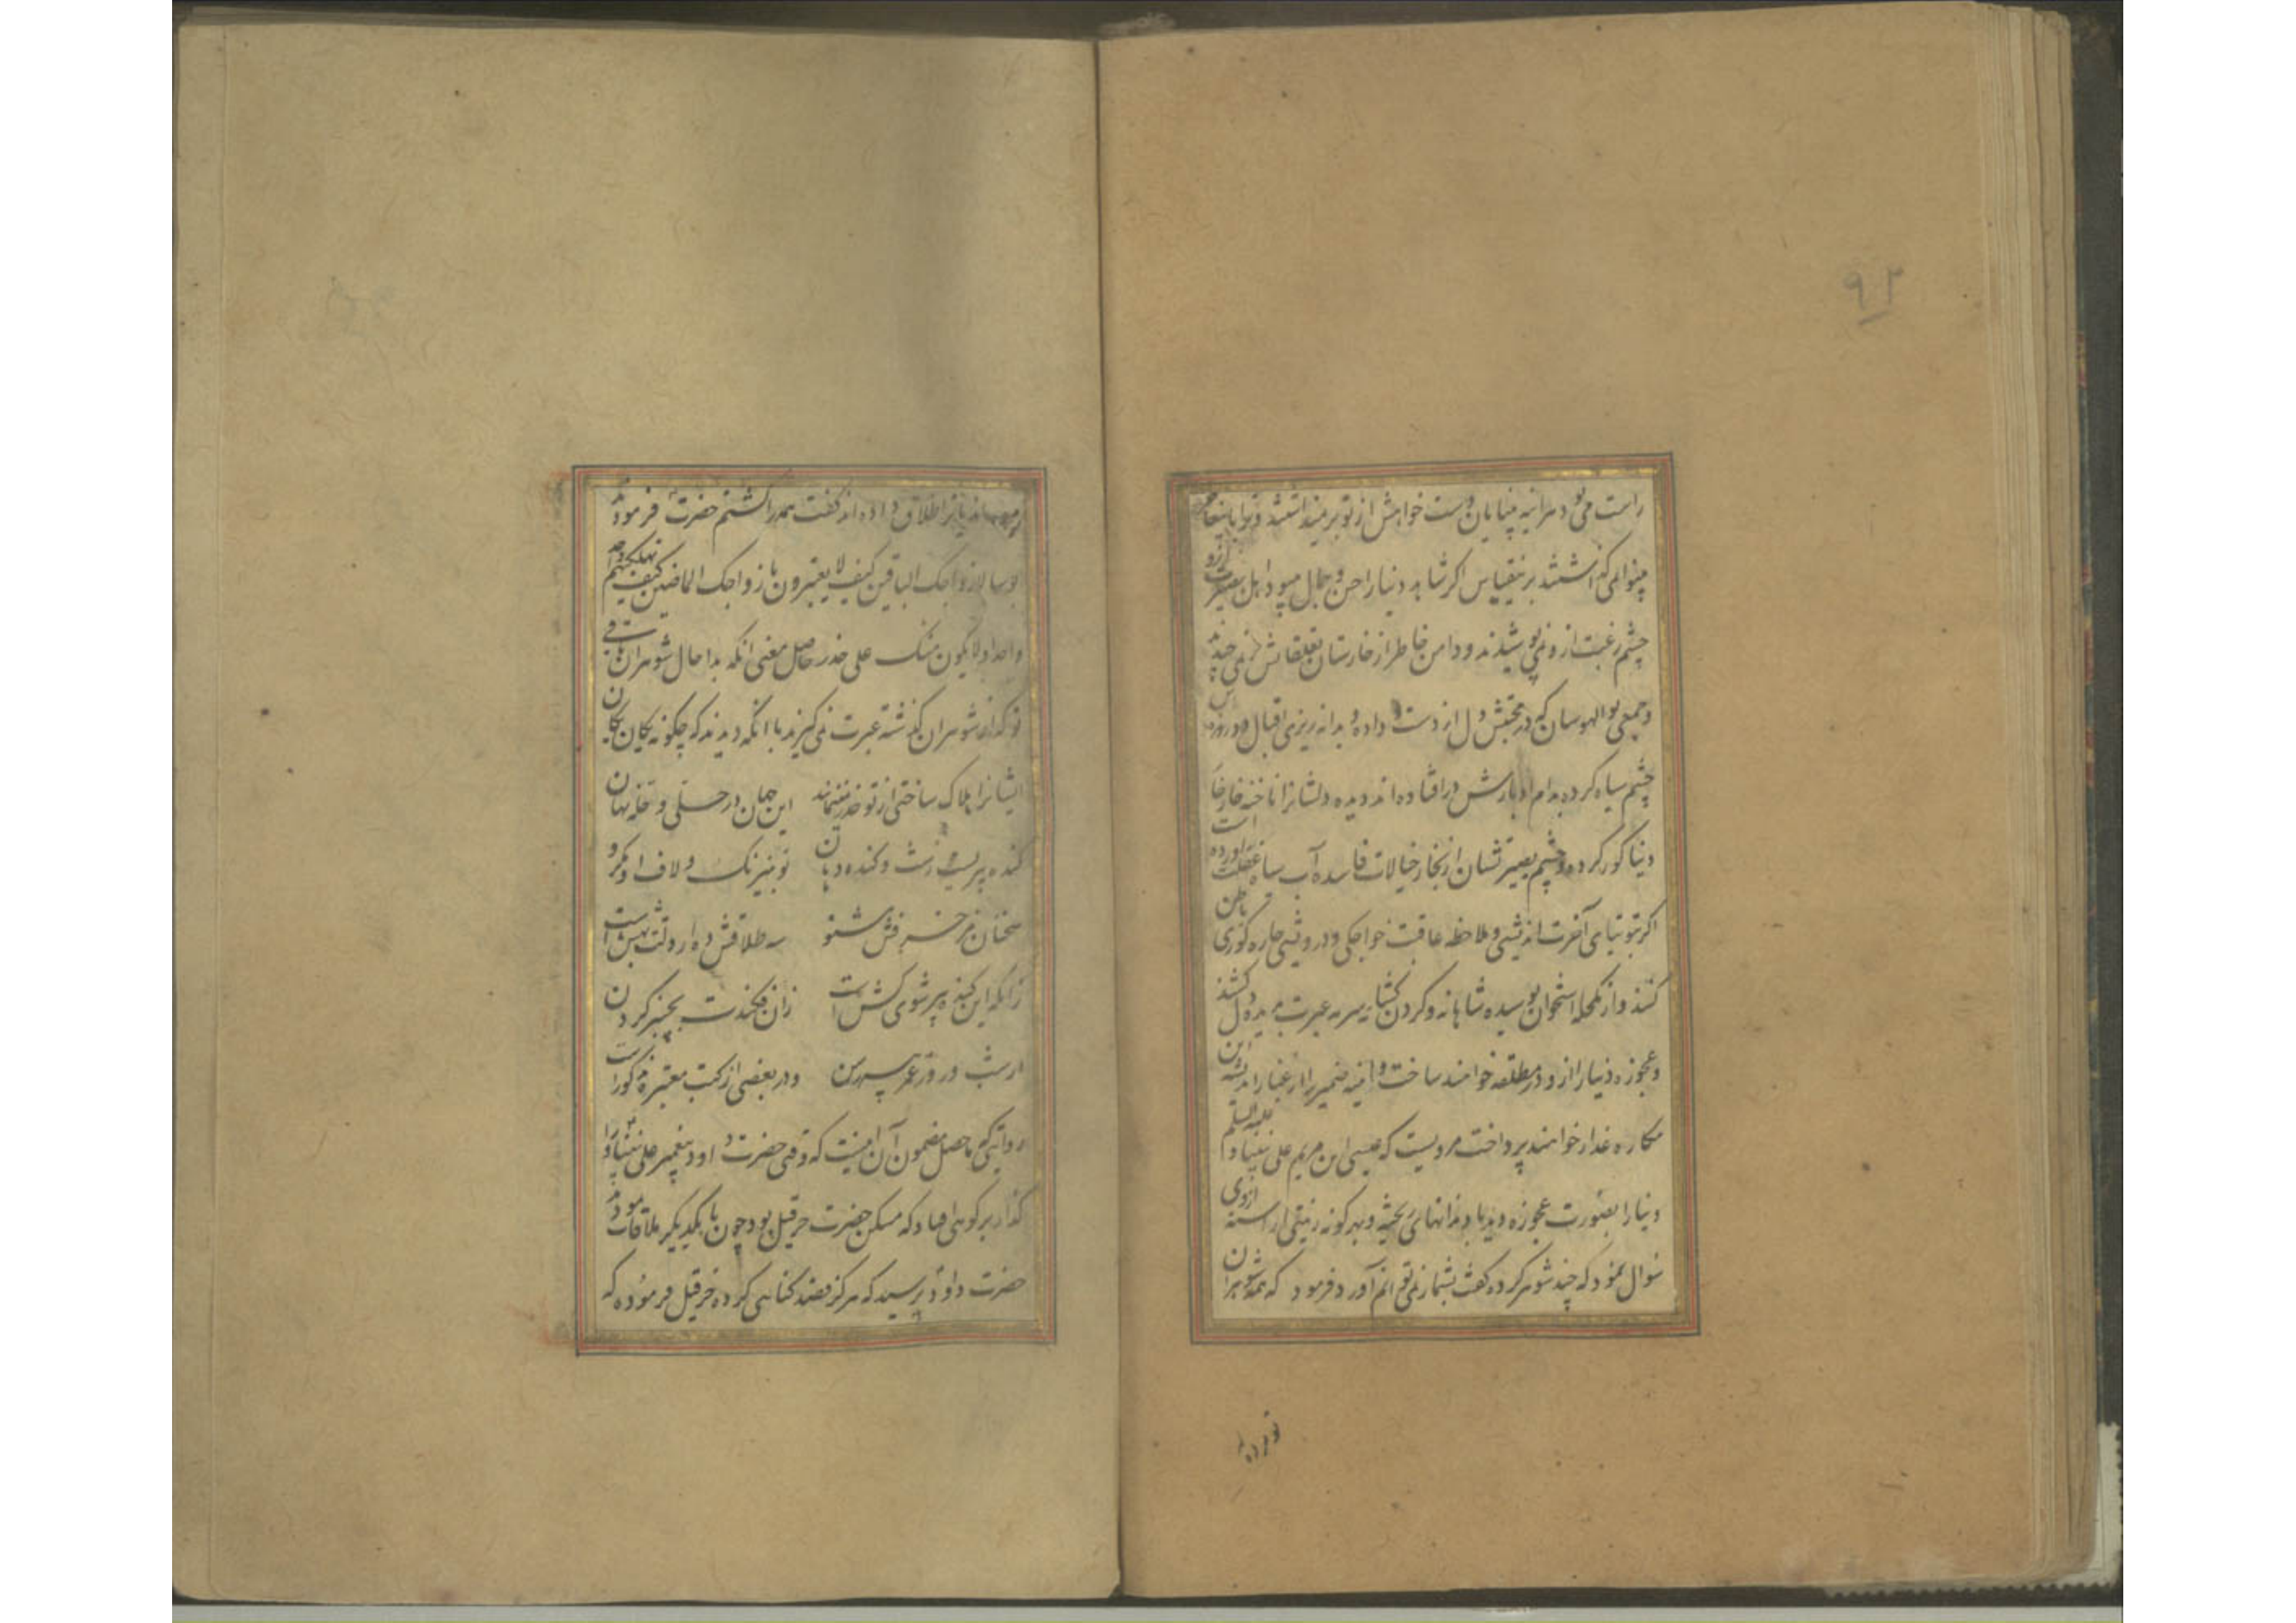 ۹۲
راست می بود هرآینه بینایان دست خواهش از تو برنمیداشتند و ترا باینجا
نمی گذاشتند برینقیاس اگر شاهد دنیا را حسن و جمال میبود اهل بصیرت ازو
چشم رغبت ازو نمی پوشیدند و دامن خاطر از خارستان تعلقاتش نمی چیدند
و جمعی بوالهوسان که در محبتش دل از دست داده و بدانه ریزهٔ اقبال دو روزه
چشم سیاه کرده بدام ادبارش درافتاده اند دیده دلشانرا ناخنه خارخار
دنیا کور کرده و چشم بصیرتشان از بخار خیالات فاسده آب سیاه غفلت آورده است
اگر بتوتیای آخرت اندیشی و ملاحظه عاقبت خواجگی و درویشی چاره کوری باطن
کنند و از مکحله استخوان بوسیده شاهانه و گردن کشان سرمه عبرت بدیده دل کشند
و عجوزه دنیا را از خود مطلقه خواهند ساخت و آینه ضمیر را از غبار اندیشه این
مکاره غدار خواهند پرداخت مرویست که عیسی ابن مریم علی نبینا و علیه السلم
دنیا را بصورت عجوزه دید با دندانهای ریخته و بهر گونه زینتی آراسته ازوی
سوال نمود که چند شوهر کرده گفت بشمار نمی توانم آورد فرمود که همه شوهران
تو مرده
اند یا ترا طلاق داده اند گفت همه را کشتم حضرت فرمود
بوسا لازواجک الباقین کیف لا یعتبرون بازواجک الماضین کیف تهلکینهم واحدا
واحدا و لا یکون منک علی حذر حاصل معنی آنکه بدا حال شوهران باقی
تو که از شوهران گذشته عبرت نمی گیرند با آنکه دیدند که چگونه یکان یکان
ایشانرا هلاک ساختی از تو حذر نمینمایند این جهان در حسلی و حله نهان
گنده پیریست زشت و گنده دهان تو بنیرنگ و لاف او مگرو
سخنان مزخرفش مشنو سه طلاقش ده ار دلت بهش است
زانکه این گنده پیر شوی کش است زان فکندت بچنبر گردن
از شب و روز عمر پسر رسن و در بعضی از کتب معتبره مذکور است
روایتی که ماحصل مضمون آن اینست که وقتی حضرت داود پیغمبر علی نبینا و را
گذار بر کوهی افتاد که مسکن حضرت حزقیل بود چون با یکدیگر ملاقات نمود
حضرت داود پرسید که هرگز قصد گناهی کرده حزقیل فرموده که